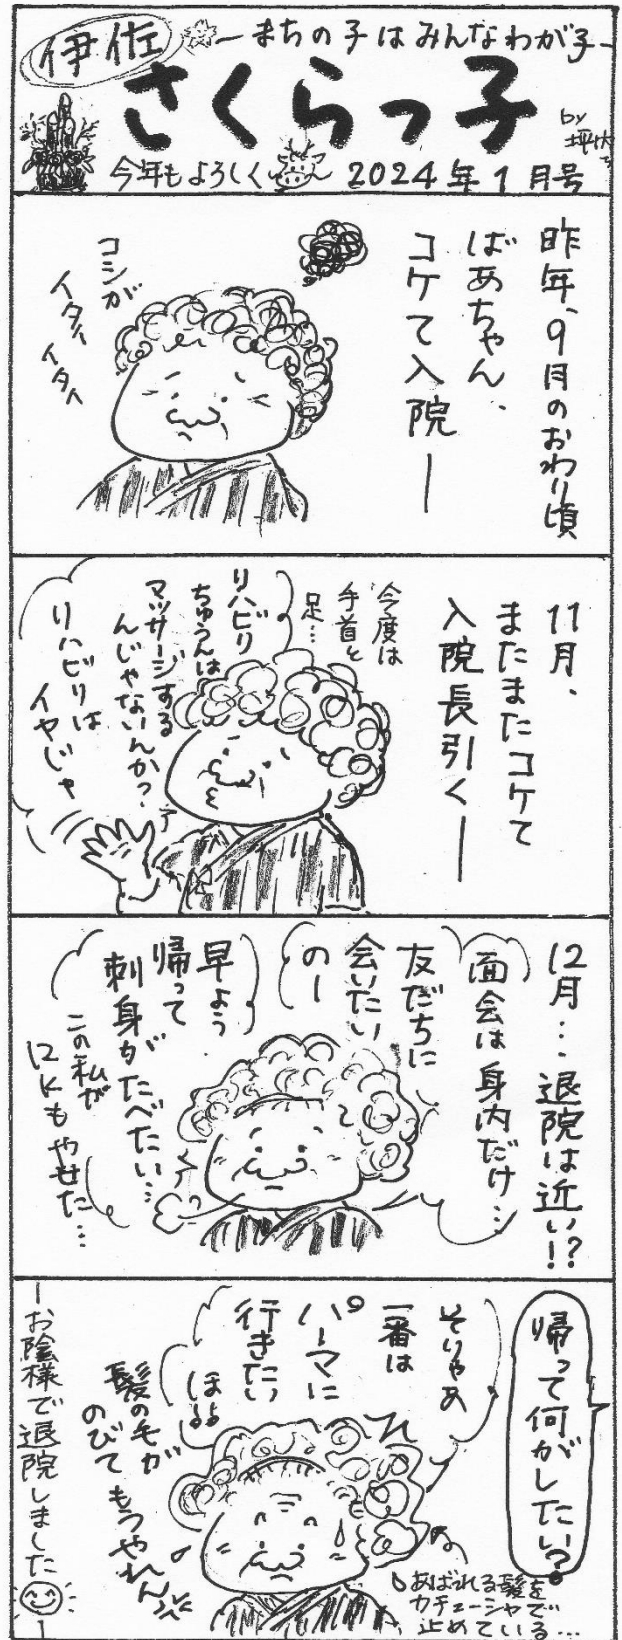 伊佐
―まちの子はみんなわが子―
さくらっ子
by
今年もよろしく
2024年1月号
昨年、9月のおわり頃
ばあちゃん、
コケて入院ー
コシが
イタイ
イタイ
11月、
またまたコケて
入院長引くー
今度は
手首と
足…
リハビリ
ちゅうんは
マッサージする
んじゃないんか?
リハビリは
イヤじゃ
12月…退院は近い!?
面会は身内だけ…
友だちに
会いたい
のー
早よう
帰って
刺身がたべたい…
この私が
12Kもやせた…
帰って何がしたい?
そりゃあ
一番は
パーマに
行きたい
ほよ
髪の毛が
のびてもうやれん
あばれる髪を
カチューシャで
止めている…
―お陰様で退院しました―